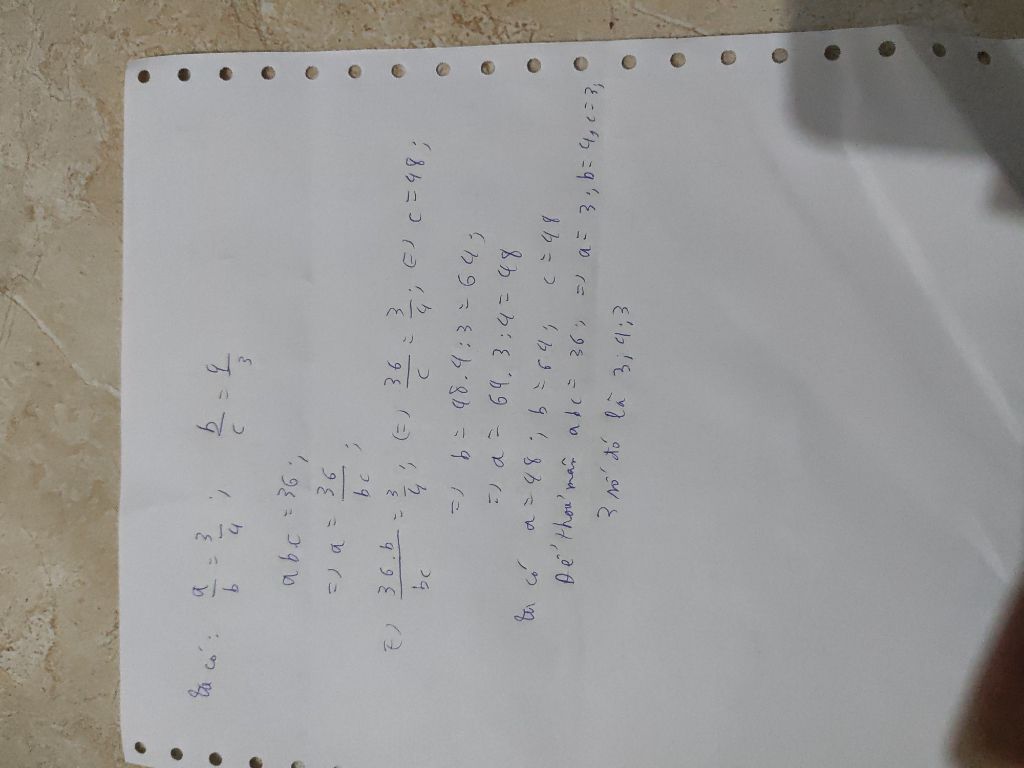 Ta có: a/b = 3/4 ; b/c = 4/3
abc = 36;
=> a = 36/bc ;
<=> 36.b/bc = 3/4 ; <=> 36/c = 3/4 ; <=> c = 48 ;
=> b = 48.4:3 = 64 ;
=> a = 64.3:4 = 48
Ta có a = 48 ; b = 64 ; c = 48
Để thoả mãn abc = 36, => a = 3 ; b = 4, c = 3,
3 số đó là 3;4;3